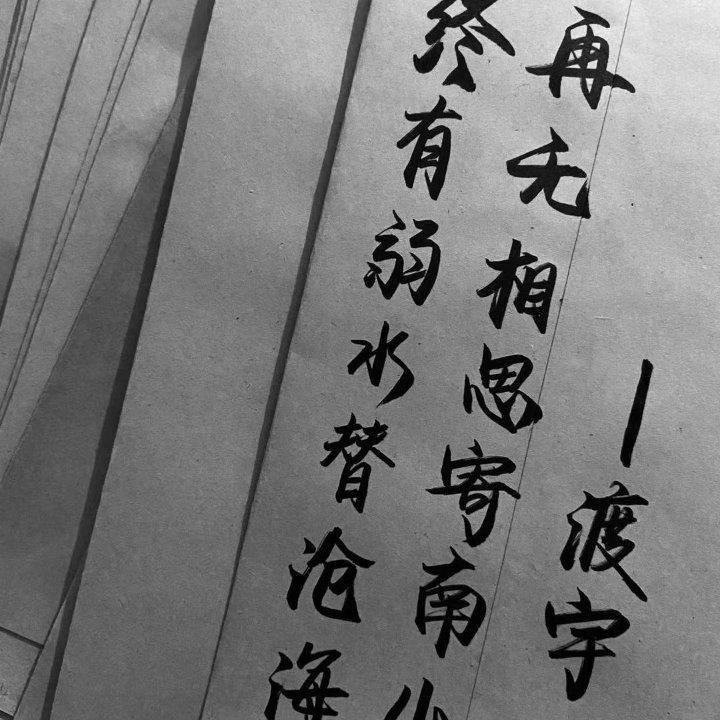 终有弱水替沧海
再无相思寄南
—渡宇